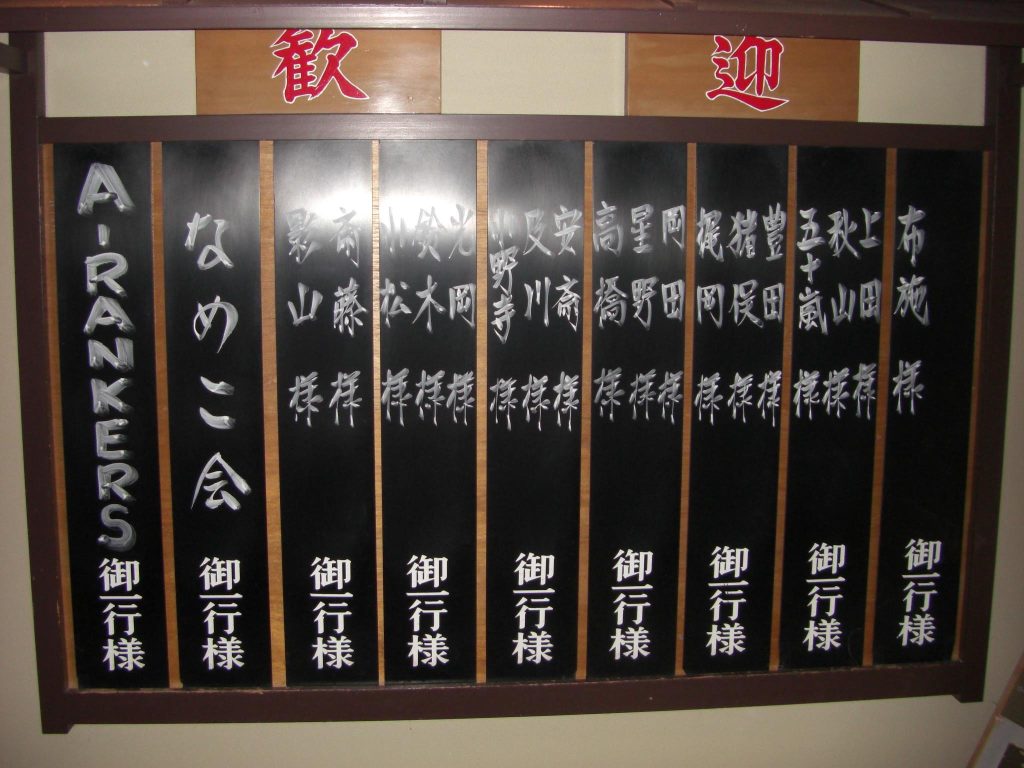 歓迎
布施様
御一行様
上田様
秋山様
五十嵐様
御一行様
豊田様
猪俣様
梶岡様
御一行様
岡田様
星野様
高橋様
御一行様
安斎様
及川様
小野寺様
御一行様
光岡様
鈴木様
小松様
御一行様
斎藤様
影山様
御一行様
なめこ会
御一行様
A-RANKERS
御一行様